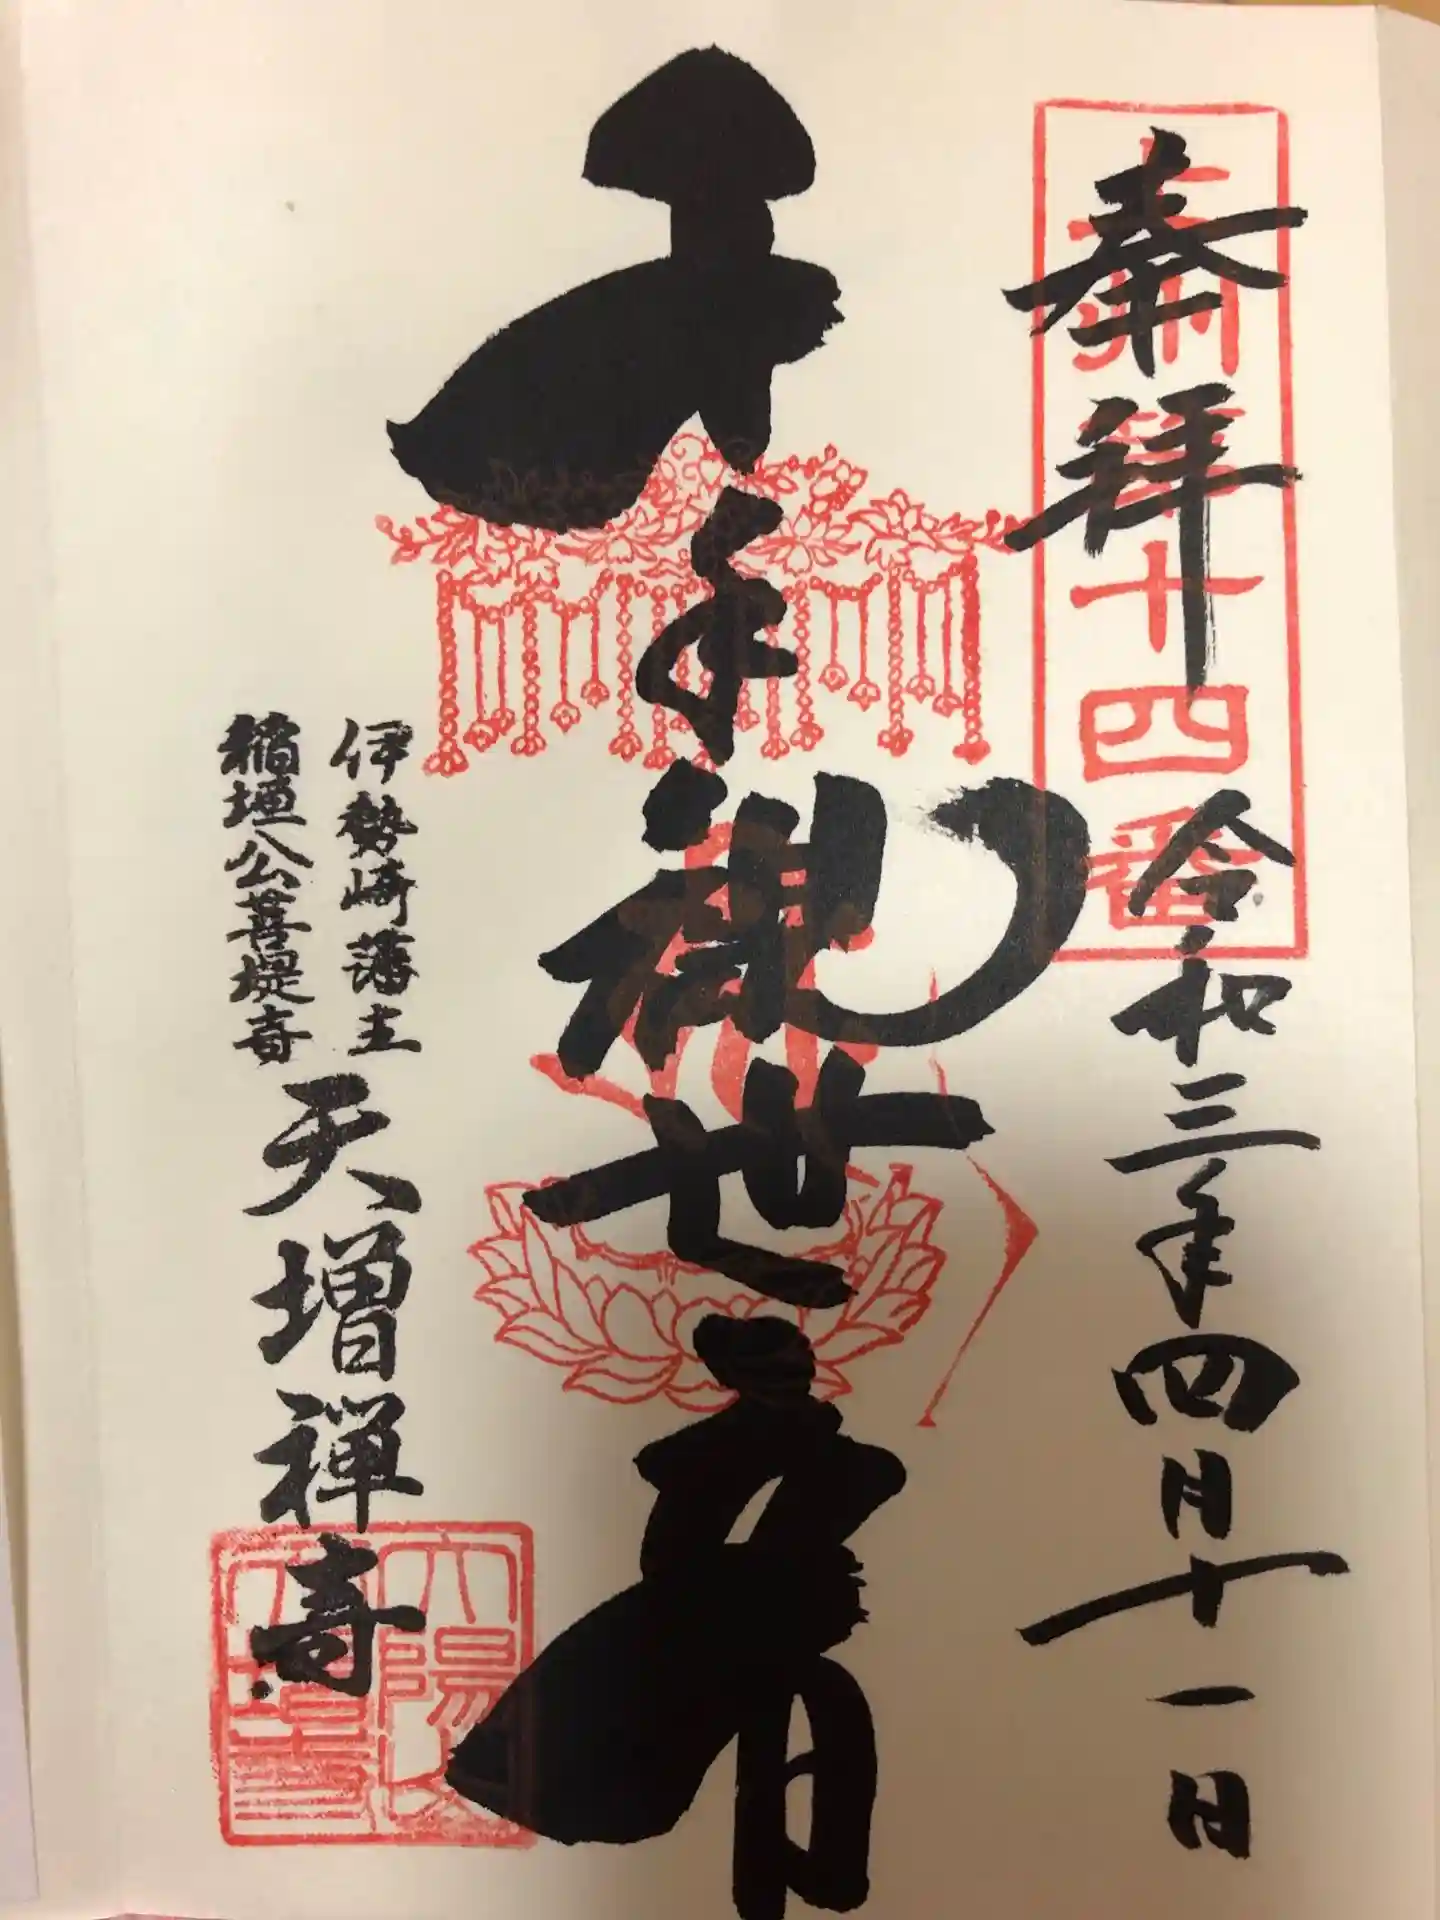 奉拝
東州第十四番
令和三年四月十一日
千手観世音
伊勢崎藩主
稲垣公菩提寺
天増禅寺